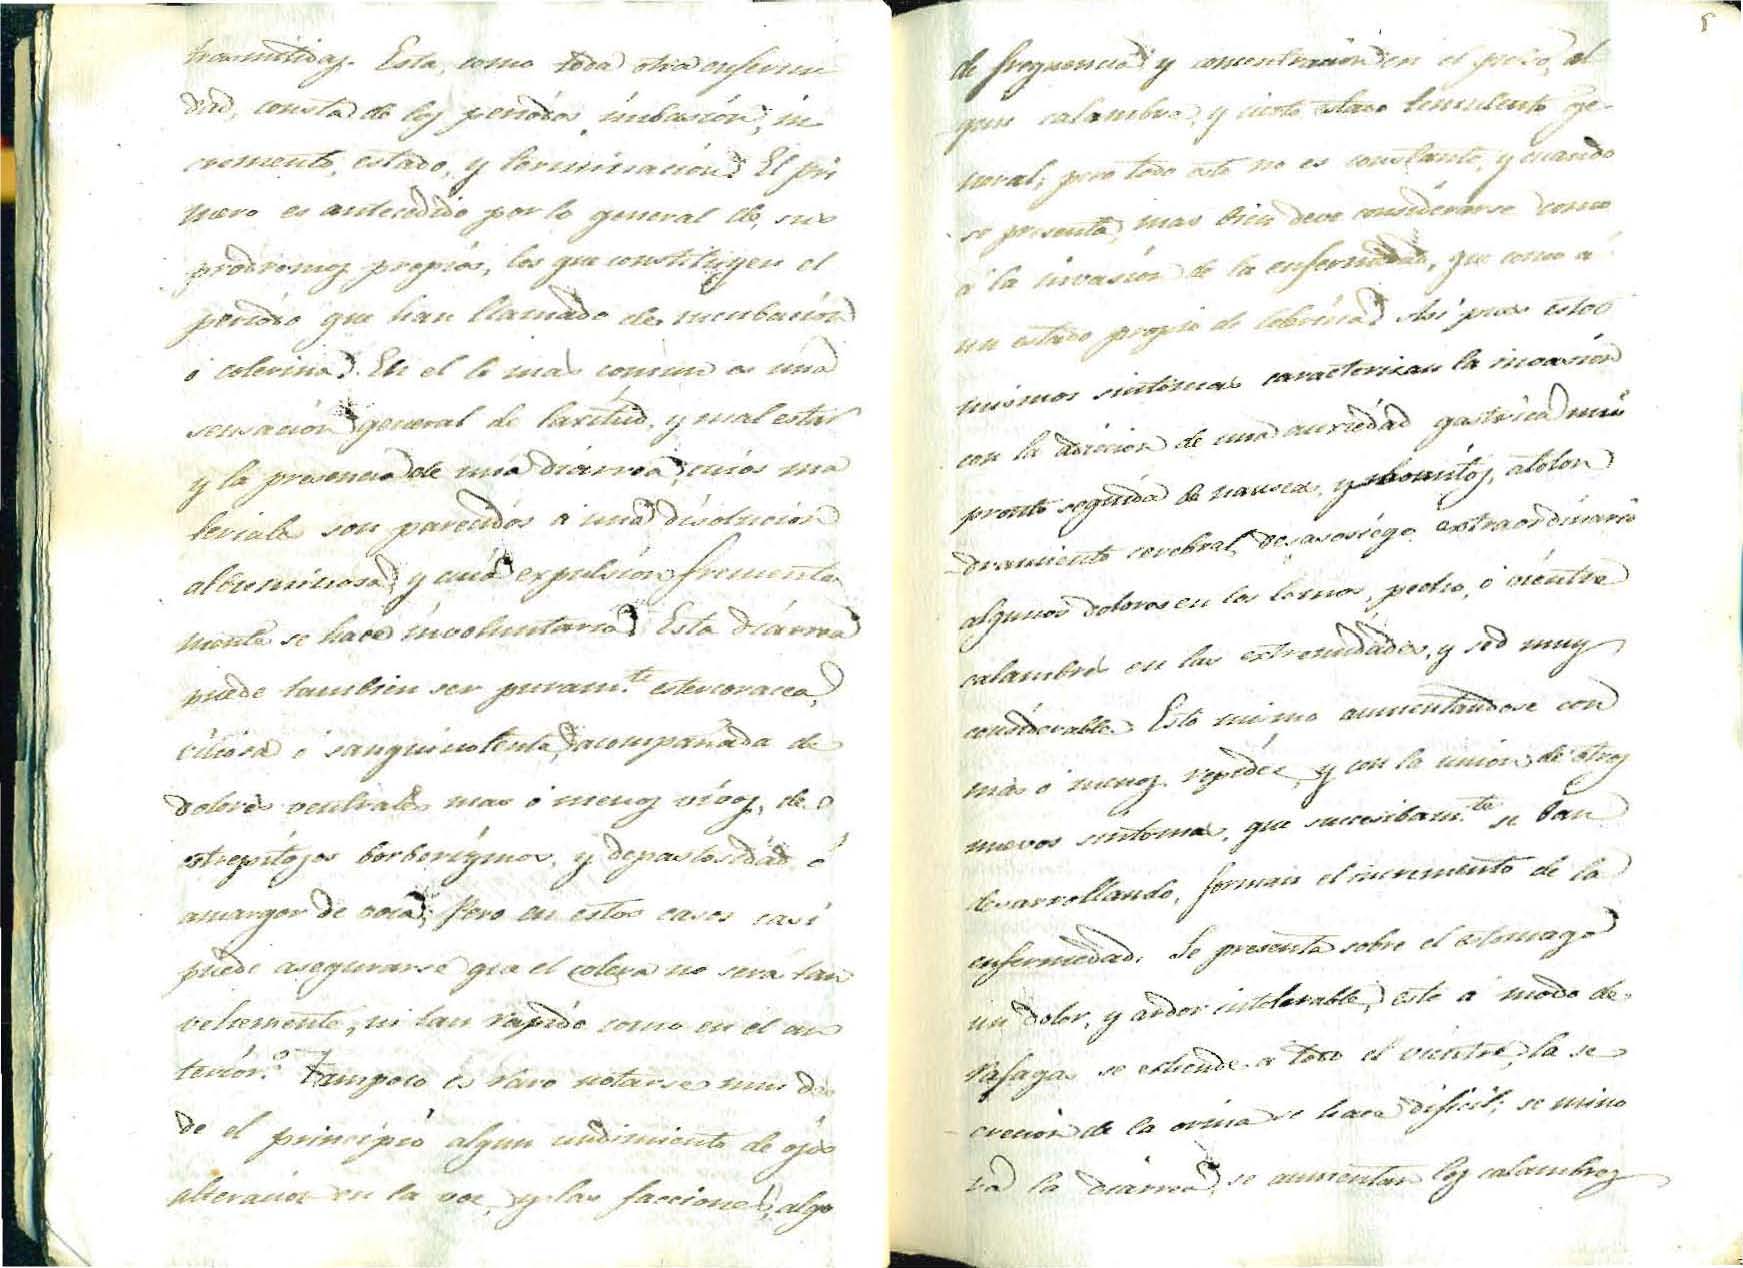 trasmitidas. Esta, como toda otra enferme
dad, consta de los periódos imbasión, in
cremento, estado, y terminación. El pri
mero es antecedido por lo general de, sus
prodromos propios, los que constituyen el
periódo que han llamado de incubación
ó colerina. En el lo mas comun es una
sensación general de laxitud, y mal estar
y la presencia de una diárrea, cuios ma
teriales son parecidos á una disolución
albuminosa, y cuiá expulsión frecuente
mente se hace involuntaria. Esta diárrea
puede tambien ser puram.te estercoracea,
viliosa ó sanguinolenta, acompañada de
dolores ventrales mas ó menos vivos, de
estrepitosos borborigmos, y de pastosidád ó
amargor de voca; Pero en estos casos casi
puede asegurarse que el colera no será tan
vehemente, ni tan rapido como en el an
terior. Tampoco es raro notarse mui des
de el principio algun undimiento de ojos
alteración en la voz, y las facciones, algo
5
de frequencia y concentración en el pulso, al
gun calambre, y cierto estado temulento ge-
neral; pero todo esto no es constante, y cuando
se presenta, mas bien deve considerarse como
á la invasión de la enfermedad, que como á
un estado propio de colerina. Asi pues estos
mismos sintomas caracterizan la invasión
con la adicion de una anxiedád gastrica mui
pronto seguida de nausea, y bomitos, atolon
dramiento cerebral, desasosiego extraordinario
algunos dolores en los lomos, pecho, ó vientre
calambres en las extremidades, y sed muy
considerable. Esto mismo aumentandose con
mas ó menos rapidéz, y con la unión de otros
nuevos sintomas, que sucesibam.te se ban
desarrollando, forman el incremento de la
enfermedad. Se presenta sobre el estomago
un dolor, y ardor intolerable, este á modo de
rafaga se estiende á todo el vientre, la se
creción de la orina se hace dificil; se mino
ra la diárrea, se aumentan los calambres